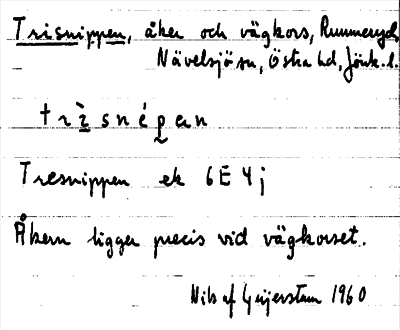 Trisnippen, åker och vägkors, Rummeryd,
Nävelsjö sn, Östra hd, Jönk. l.
trìsnépan
Tresnippen ek 6E4j
Åkern ligger precis vid vägkorset.
Nils af Geijerstam 1960